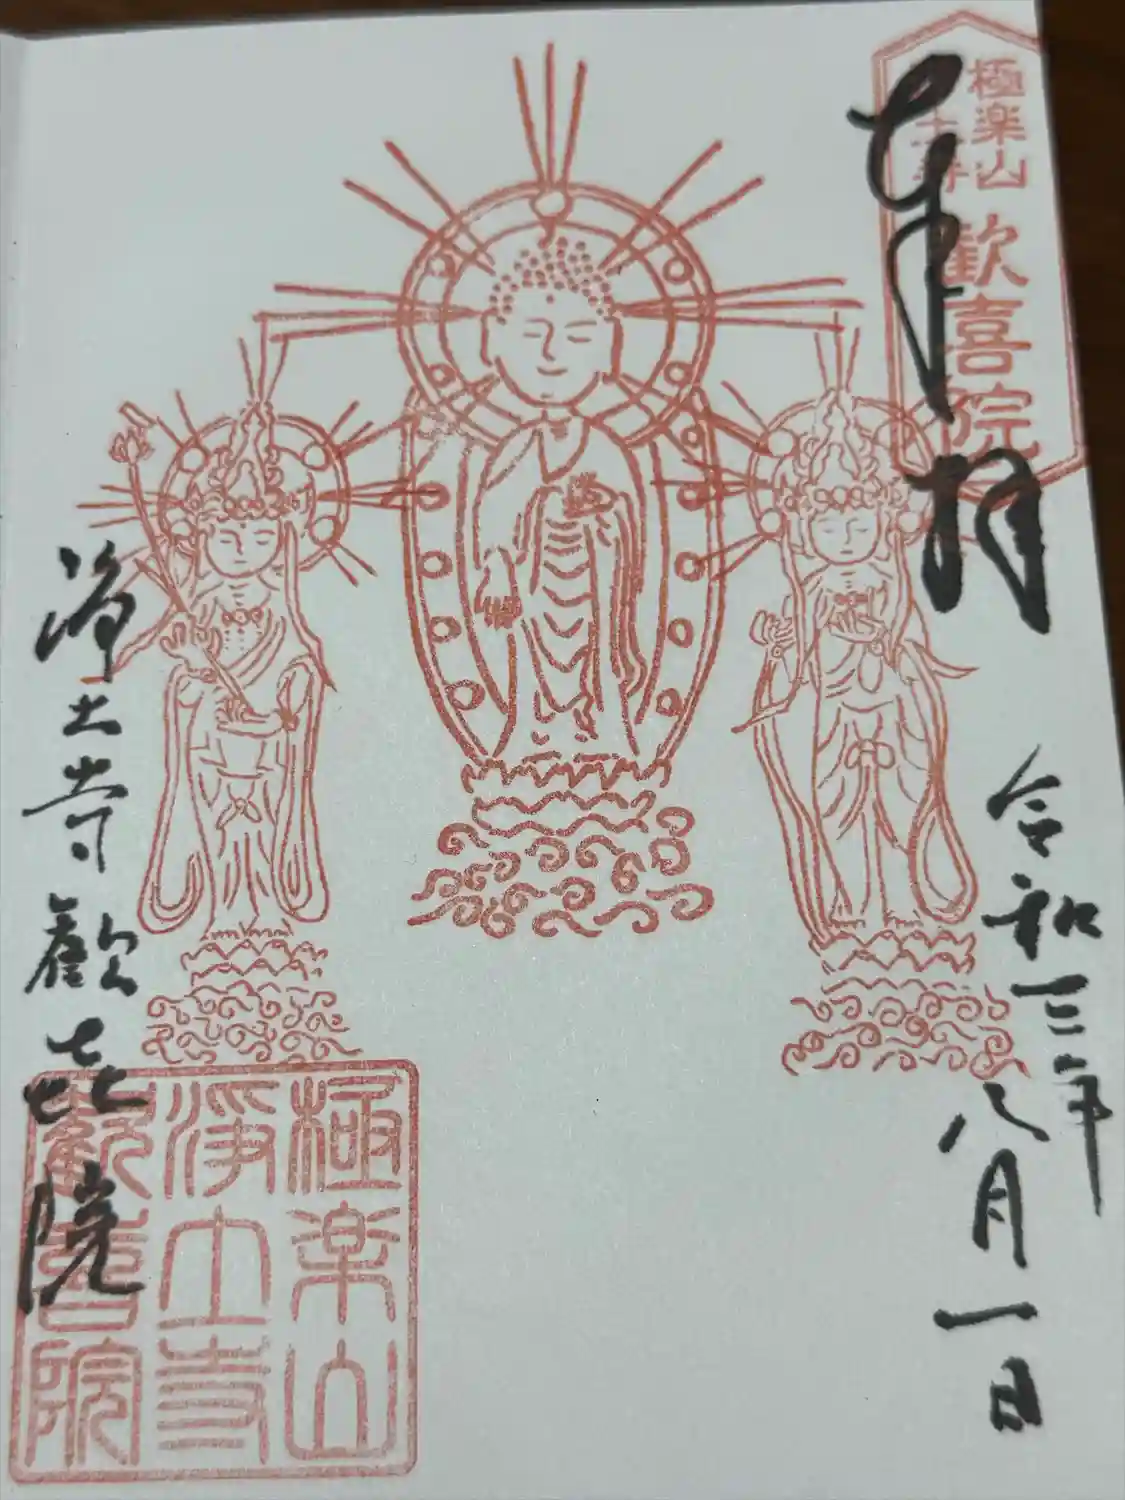 極楽山
土寺
歓喜院
奉拝
令和三年
八月一日
浄土寺歓㐂院
極楽山
浄土寺
歓喜院